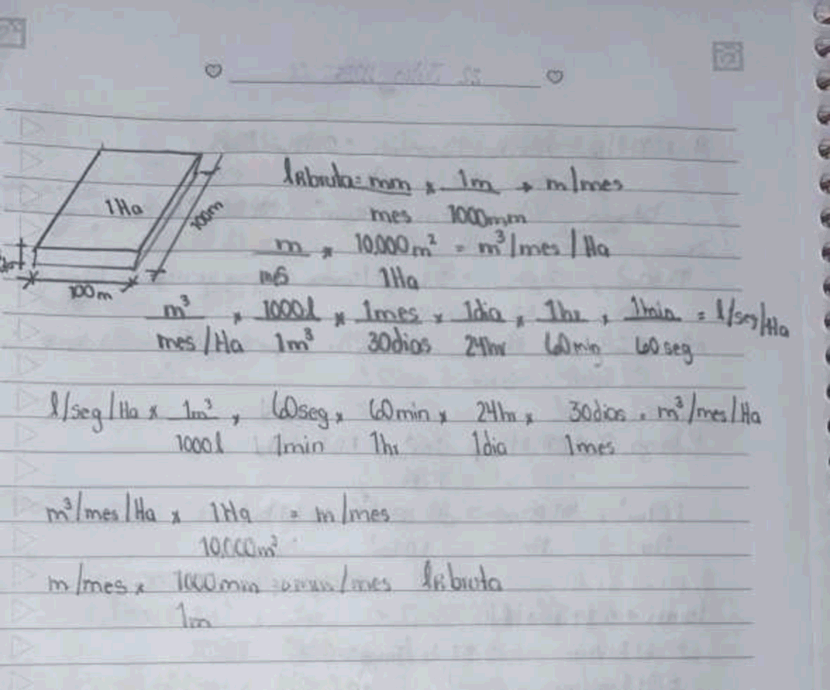 1Ha
100m
100m
lRbruta = mm/mes x 1m/1000mm → m/mes
m/mes x 10.000m²/1Ha = m³/mes/Ha
m³/mes/Ha x 1000l/1m³ x 1mes/30dias x 1dia/24hr x 1hr/60min x 1min/60seg = l/seg/Ha
l/seg/Ha x 1m³/1000l x 60seg/1min x 60min/1hr x 24hr/1dia x 30dias/1mes = m³/mes/Ha
m³/mes/Ha x 1Ha/10.000m² = m/mes
m/mes x 1000mm/1m = mm/mes lRbruta